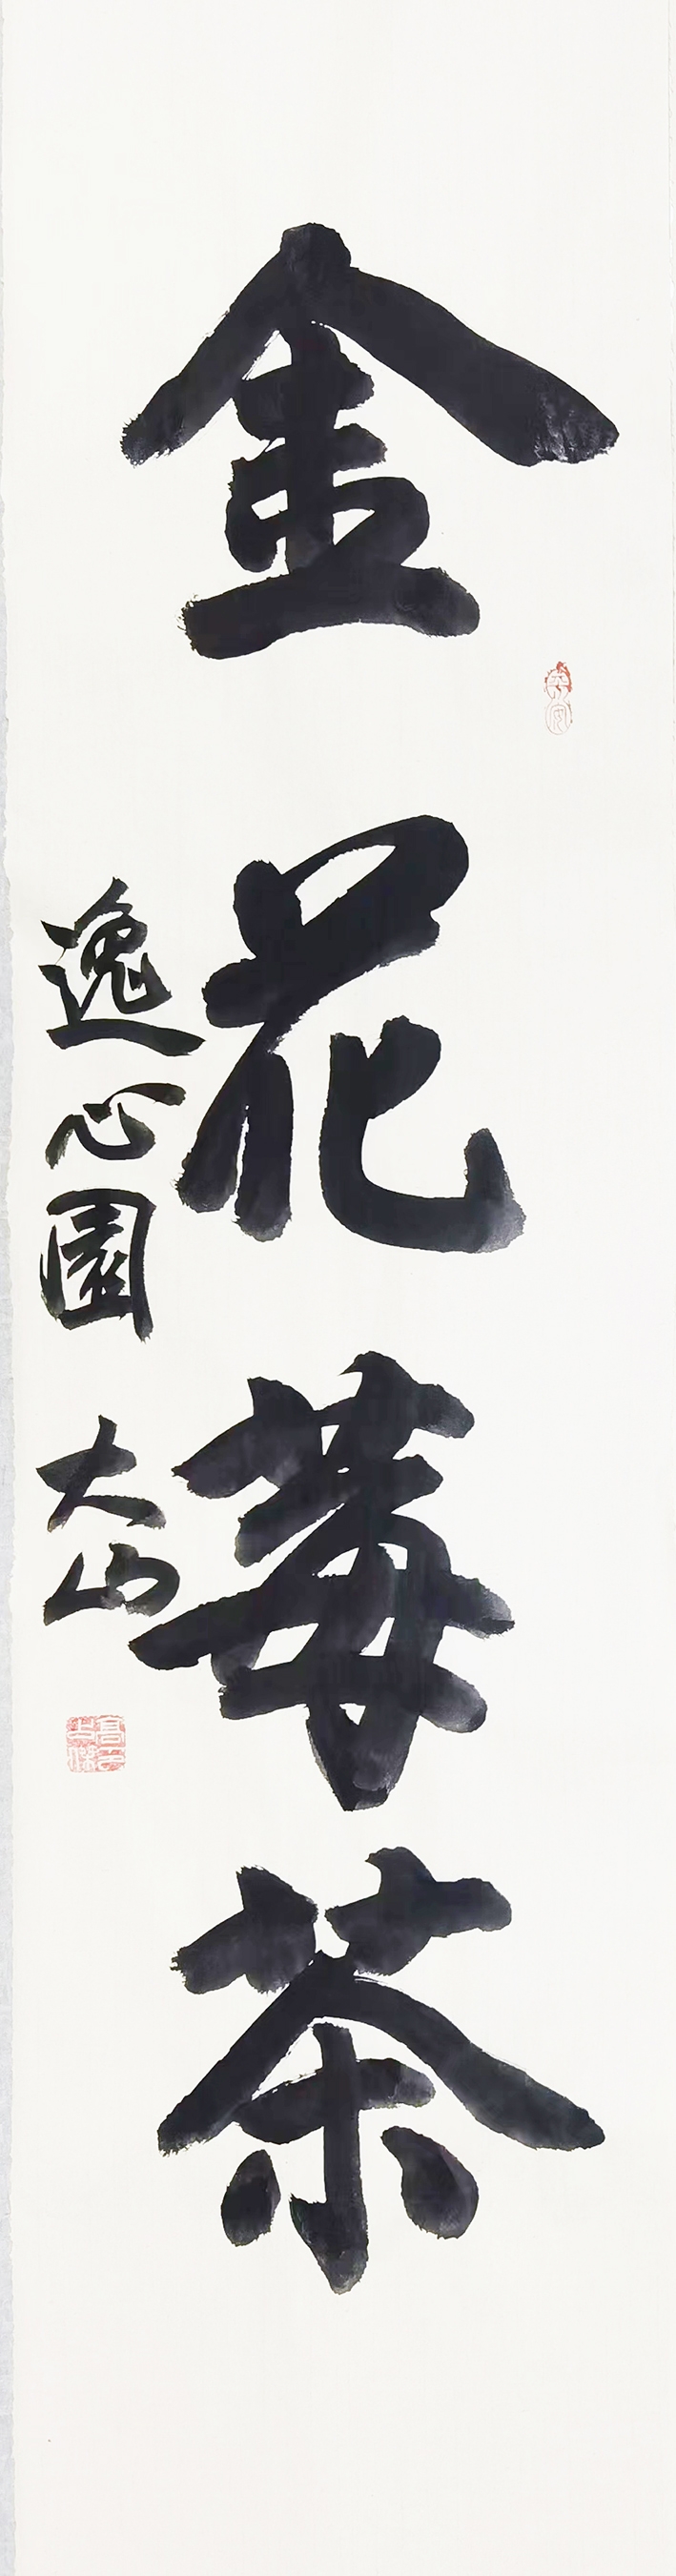 金花莓茶
逸心園 大山